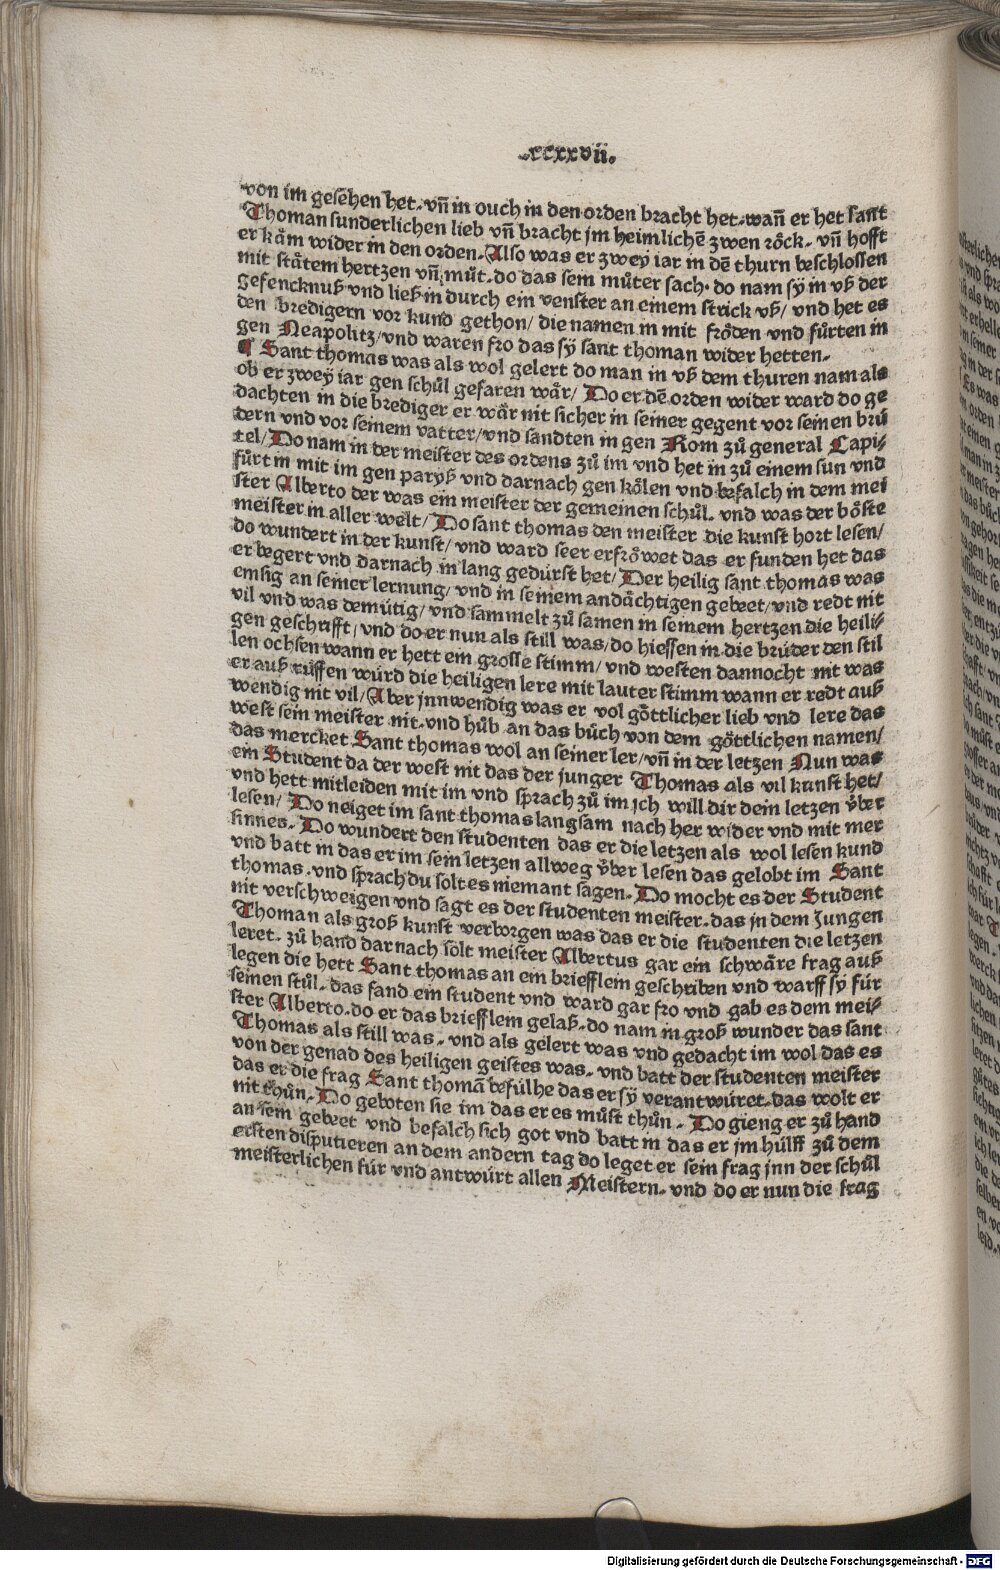 .ccxxvii.
von im gesehen het. vñ in ouch in den orden bracht het. wañ er het sant
Thoman sunderlichen lieb vñ bracht jm heimlichē zwen roͤck. vñ hofft
er kaͤm wider in den orden. Also was er zwey iar in dē thurn beschlossen
mit staͤtem hertzen vñ muͦt. do das sein muͦter sach. do nam sy in vß der
gefencknuß vnd ließ in durch ein venster an einem strick vß/ vnd het es
den bredigern vor kund gethon/ die namen in mit froͤden vnd fuͤrten in
gen Neapolitz/ vnd waren fro das sy sant thoman wider hetten.
¶ Sant thomas was als wol gelert do man in vß dem thuren nam als
ob er zwey iar gen schuͦl gefaren waͤr/ Do er dē orden wider ward do ge
dachten in die brediger er waͤr nit sicher in seiner gegent vor seinen bruͤ
dern vnd vor seinem vatter/ vnd sandten in gen Rom zuͦ general Capi⸗
tel/ Do nam in der meister des ordens zuͦ im vnd het in zuͦ einem sun vnd
fuͤrt in mit im gen paryß vnd darnach gen koͤlen vnd befalch in dem mei
ster Alberto der was ein meister der gemeinen schuͦl. vnd was der boͤste
meister in aller welt/ Do sant thomas den meister die kunst hort lesen/
do wundert in der kunst/ vnd ward seer erfroͤwet das er funden het das
er begert vnd darnach in lang geduͤrst het/ Der heilig sant thomas was
emsig an seiner lernung/ vnd in seinem andaͤchtigen gebeet/ vnd redt nit
vil vnd was demuͤtig/ vnd sammelt zuͦ samen in seinem hertzen die heili⸗
gen geschrifft/ vnd do er nun als still was/ do hiessen in die bruͤder den stil
len ochsen wann er hett ein grosse stimm/ vnd westen dannocht nit was
er auß ruͤffen wuͤrd die heiligen lere mit lauter stimm wann er redt auß
wendig nit vil/ Aber jnnwendig was er vol goͤttlicher lieb vnd lere das
west sein meister nit. vnd huͦb an das buͦch von dem goͤttlichen namen/
das mercket Sant thomas wol an seiner ler/ vñ in der letzen Nun was
ein Student da der west nit das der junger Thomas als vil kunst het/
vnd hett mitleiden mit im vnd sprach zuͦ im ich will dir dein letzen vͤber
lesen/ Do neiget im sant thomas langsam nach her wider vnd mit mer
sinnes. Do wundert den studenten das er die letzen als wol lesen kund
vnd batt in das er im sein letzen allweg vͤber lesen das gelobt im Sant
thomas. vnd sprach du solt es niemant sagen. Do mocht es der Student
nit verschweigen vnd sagt es der studenten meister. das in dem Jungen
Thoman als groß kunst verborgen was das er die studenten die letzen
leret. zuͦ hand dar nach solt meister Albertus gar ein schwaͤre frag auß
legen die hett Sant thomas an ein briefflein geschriben vnd warff sy fuͤr
seinen stuͦl. das fand ein student vnd ward gar fro vnd gab es dem mei⸗
ster Alberto. do er das briefflein gelaß. do nam in groß wunder das sant
Thomas als still was. vnd als gelert was vnd gedacht im wol das es
von der genad des heiligen geistes was. vnd batt der studenten meister
das er die frag Sant thomā befuͤlhe das er sy verantwuͤret. das wolt er
nit thuͦn. Do geboten sie im das er es muͦst thuͦn. Do gieng er zuͦ hand
an sein gebeet vnd befalch sich got vnd batt in das er jm huͤlff zuͦ dem
ersten disputieren an dem andern tag do leget er sein frag jnn der schuͦl
meisterlichen fuͤr vnd antwuͤrt allen Meistern. vnd do er nun die frag
Digitalisierung gefördert durch die Deutsche Forschungsgemeinschaft - DFG